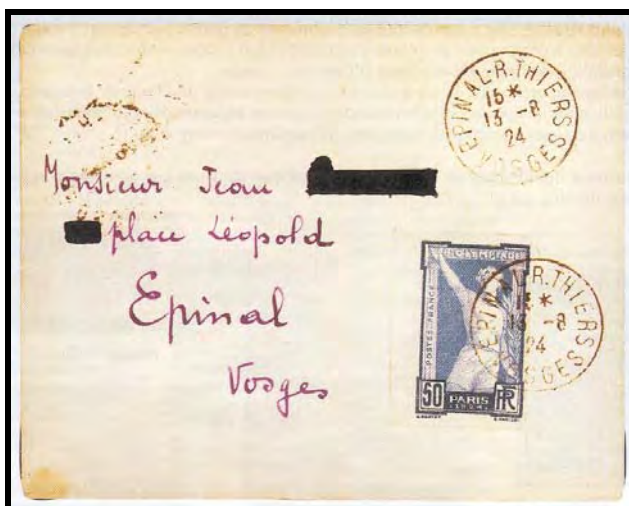 EPINAL-R.THIERS
15*
13 -8
24
VOSGES
Monsieur Jean
place Léopold
Epinal
Vosges
POSTES FRANCE
50
PARIS
RF
EPINAL-R.THIERS
15*
13 -8
24
VOSGES